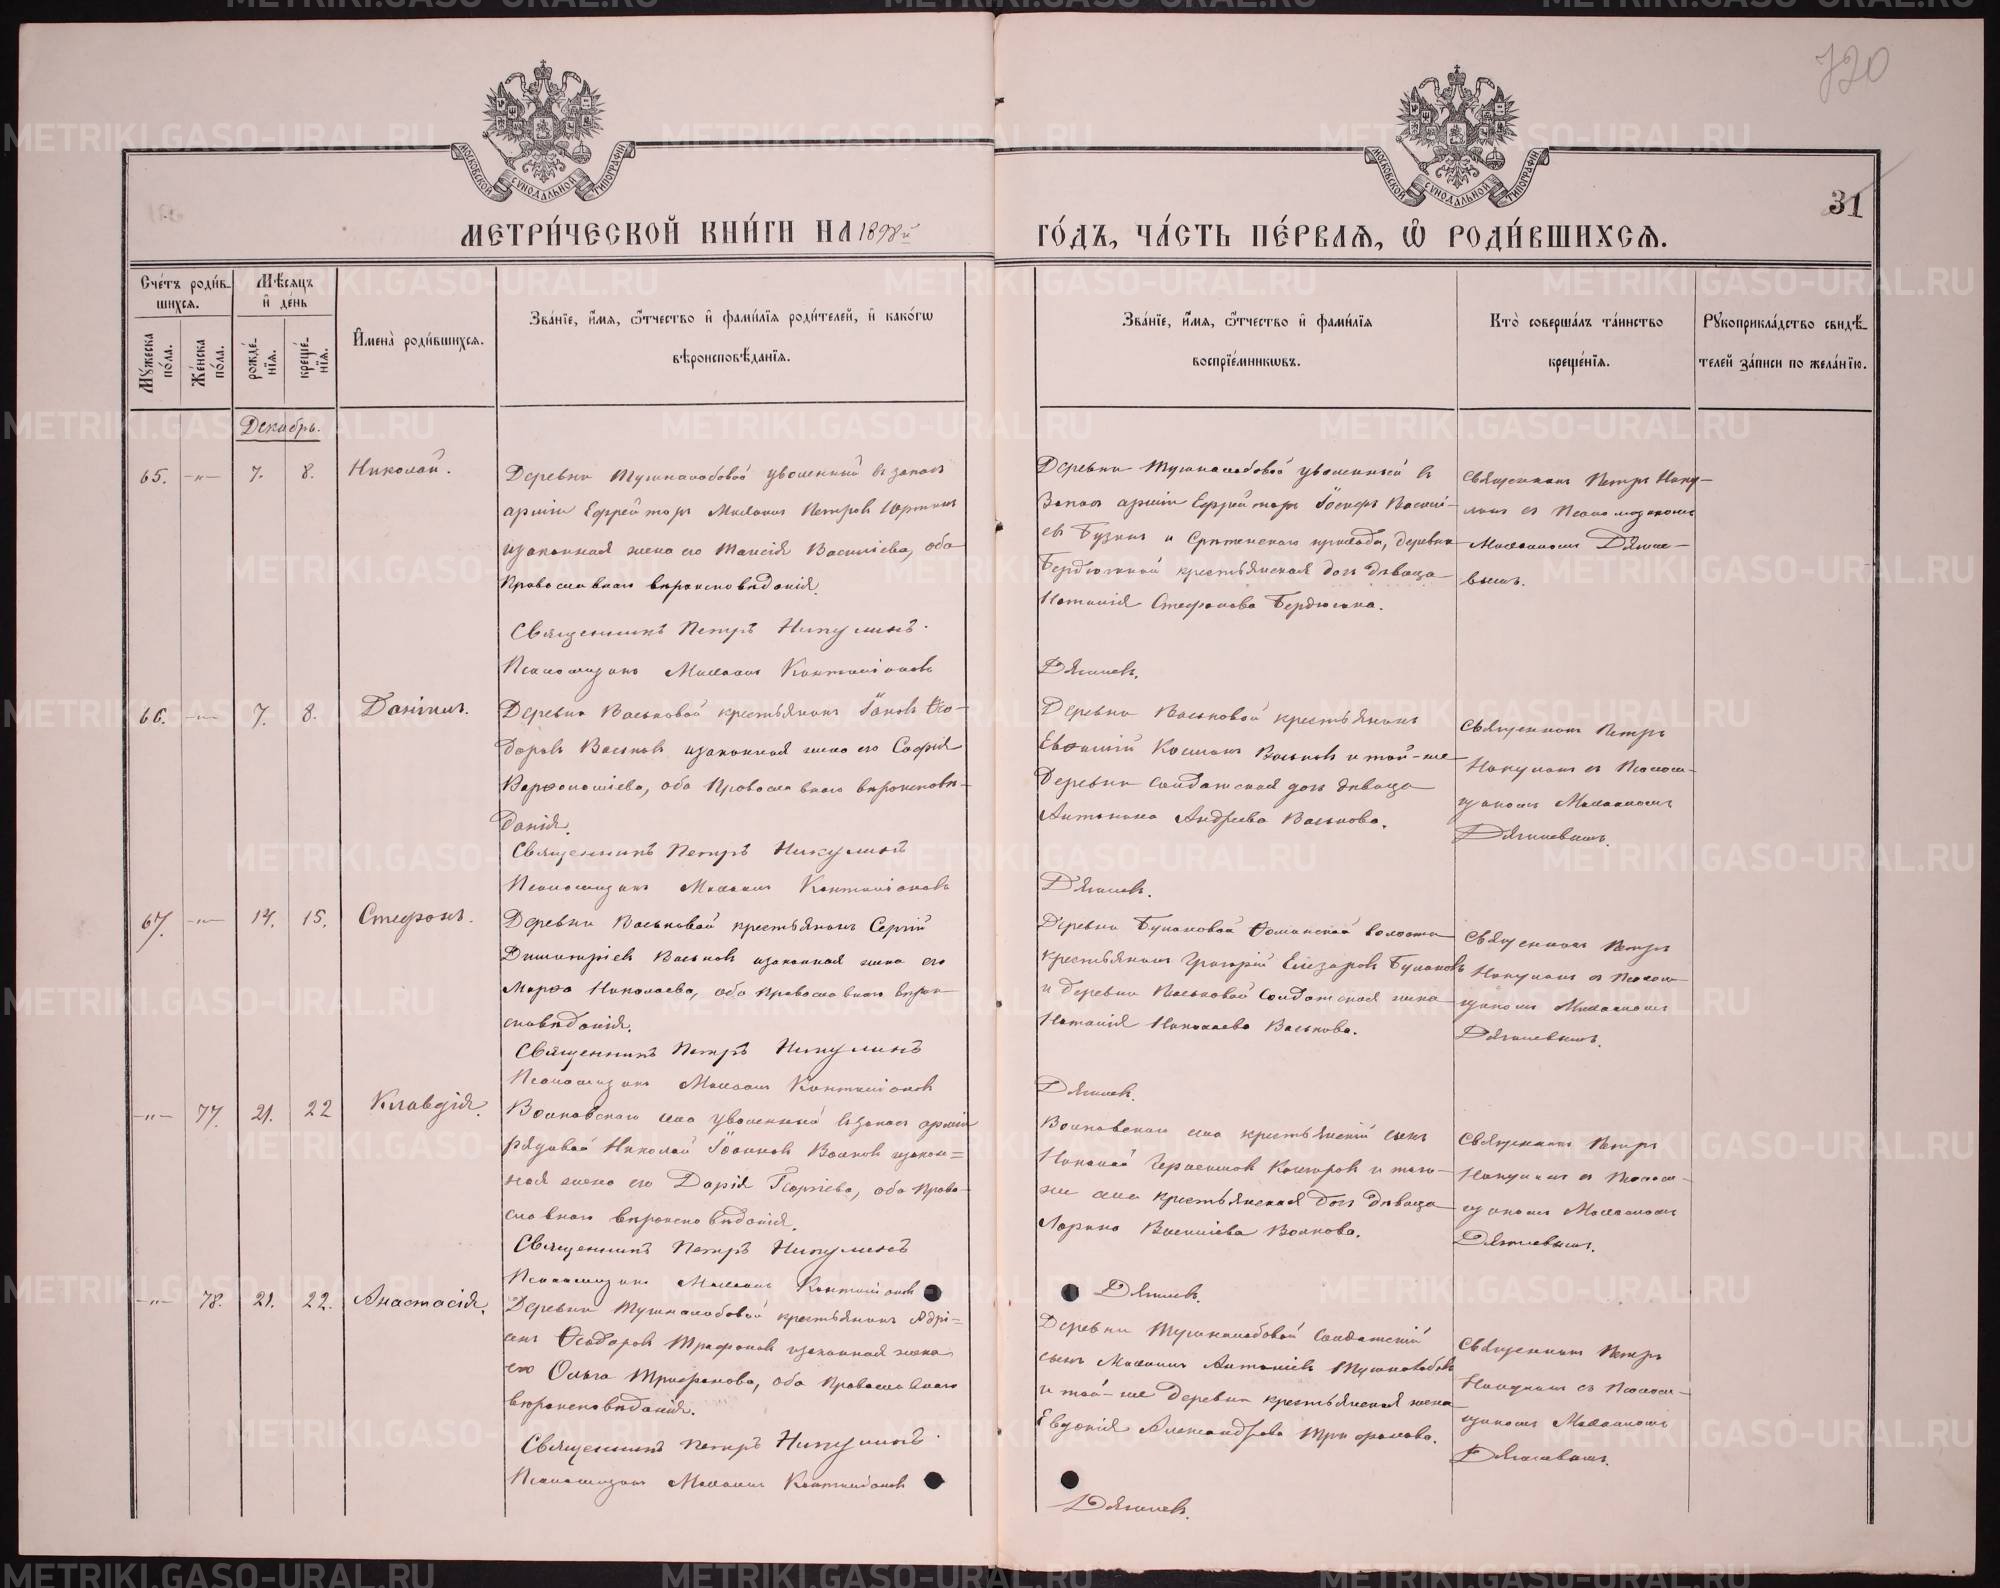 720
31
МОСКОВСКОЙ СѴНОДАЛЬНОЙ ТИПОГРАФІИ
МОСКОВСКОЙ СѴНОДАЛЬНОЙ ТИПОГРАФІИ
МЕТРИ́ЧЕСКОЙ КНИ́ГИ НА 1898й ГО́ДЪ, ЧА́СТЬ ПЕ́РВАѦ, Ѡ РОДИ́ВШИХСѦ.
Сче́тъ роди́в-
шихсѧ.
Мѣ́сѧцъ
и҆ де́нь
Мꙋ́жеска по́ла.
Же́нска по́ла.
рожде́-
нїѧ.
креще́-
нїѧ.
И҆мена̀ роди́вшихсѧ.
Зва́нїе, и҆́мѧ, ѻ҆́тчество и҆ фами́лїѧ роди́телей, и҆ како́гѡ
вѣроисповѣ́данїѧ.
Зва́нїе, и҆́мѧ, ѻ҆́тчество и҆ фами́лїѧ
воспрїе́мникѡвъ.
Кто̀ соверша́лъ та́инство
креще́нїѧ.
Рꙋкоприкла́дство свидѣ́-
телей за́писи по жела́нїю.
Декабрь.
65. -„- 7. 8. Николай.
Деревни Тушкалобовой уволенный в запас
арміи Ефрейторъ Михаилъ Петровъ
и законная жена его Таисія Василіева, оба
Православнаго вѣроисповѣданія.
Священникъ Петръ Никулинъ.
Псаломщикъ Михаилъ
Деревни Тушкалобовой уволенный в
Запас арміи Ефрейторъ Іосифъ Васил-
евъ Бузинъ и Срѣтенскаго прихода, деревни
Бердюгиной крестьянская дочь дѣвица
Наталія Стефанова Бердюгина.
Дягилевъ.
Священникъ Петръ Нику-
линъ съ Псаломщикомъ
Михаиломъ Дягиле-
вымъ.
66. -„- 7. 8. Даніилъ.
Деревни Васьковой крестьянинъ Іаковъ Ѳео-
доровъ Васьковъ и законная жена его Софія
Варѳоломіева, оба Православнаго вѣроисповѣ-
данія.
Священникъ Петръ Никулинъ
Псаломщикъ Михаилъ
Деревни Васьковой крестьянинъ
Евѳимій Косминъ Васьковъ и той-же
Деревни солдатская дочь дѣвица
Антонина Андреева Васькова.
Дягилевъ.
Священникъ Петръ
Никулинъ съ Псалом-
щикомъ Михаиломъ
Дягилевымъ.
67. -„- 14. 15. Стефанъ.
Деревни Васьковой крестьянинъ Сергій
Димитріевъ Васьковъ и законная жена его
Марѳа Николаева, оба Православнаго вѣрои-
сповѣданія.
Священникъ Петръ Никулинъ
Псаломщикъ Михаилъ
Деревни Булановой волости
крестьянинъ Григорій Елизаровъ Булановъ
и деревни Васьковой Солдатская жена
Наталія Николаева Васькова.
Дягилевъ.
Священникъ Петръ
Никулинъ съ Псалом-
щикомъ Михаиломъ
Дягилевымъ.
-„- 77. 21. 22 Клавдія.
Волковскаго села уволенный в запасъ арміи
рядовой Николай Іоанновъ Волковъ и закон=
ная жена его Дарія Георгіева, оба Право-
славнаго вѣроисповѣданія.
Священникъ Петръ Никулинъ
Псаломщикъ Михаилъ
Волковскаго села крестьянскій сынъ
Николай Герасимовъ и того-
же села крестьянская дочь дѣвица
Ларина Василіева Волкова.
Дягилевъ.
Священникъ Петръ
Никулинъ съ Псалом-
щикомъ Михаиломъ
Дягилевымъ.
-„- 78. 21. 22. Анастасія.
Деревни Тушкалобовой крестьянинъ Адрі=
анъ Ѳеодоровъ Трифоновъ и законная жена
его Ольга Трифонова, оба Православнаго
вѣроисповѣданія.
Священникъ Петръ Никулинъ.
Псаломщикъ Михаилъ
Деревни Тушкалобовой Солдатскій
сынъ Михаилъ Антоніевъ Тушкалобовъ
и той-же деревни крестьянская жена
Евдокія Александрова Трифонова.
Дягилевъ.
Священникъ Петръ
Никулинъ съ Псалом-
щикомъ Михаиломъ
Дягилевымъ.
METRIKI.GASO-URAL.RU